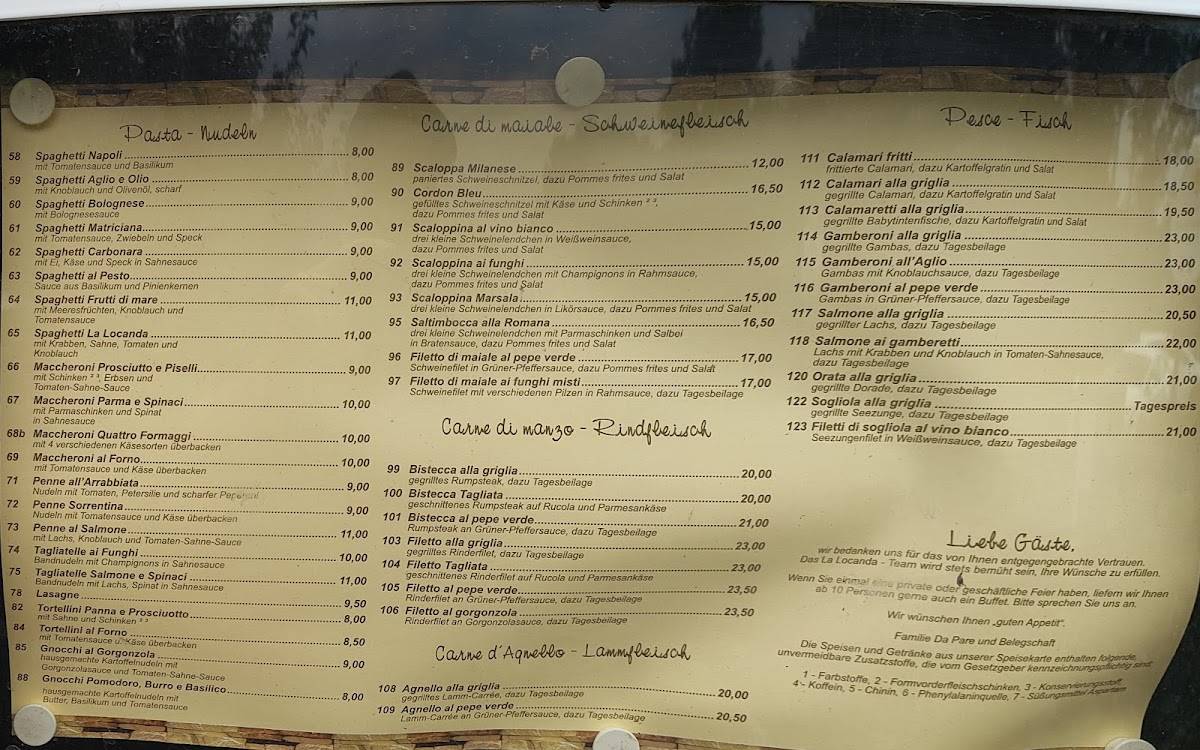 Pasta - Nudeln
58 Spaghetti Napoli 8,00
mit Tomatensauce und Basilikum
59 Spaghetti Aglio e Olio 8,00
mit Knoblauch und Olivenöl, scharf
60 Spaghetti Bolognese 9,00
mit Bolognesesauce
61 Spaghetti Matriciana 9,00
mit Tomatensauce, Zwiebeln und Speck
62 Spaghetti Carbonara 9,00
mit Ei, Käse und Speck in Sahnesauce
63 Spaghetti al Pesto 9,00
Sauce aus Basilikum und Pinienkernen
64 Spaghetti Frutti di mare 11,00
mit Meeresfrüchten, Knoblauch und
Tomatensauce
65 Spaghetti La Locanda 11,00
mit Krabben, Sahne, Tomaten und
Knoblauch
66 Maccheroni Prosciutto e Piselli 9,00
mit Schinken ² ³, Erbsen und
Tomaten-Sahne-Sauce
67 Maccheroni Parma e Spinaci 10,00
mit Parmaschinken und Spinat
in Sahnesauce
68b Maccheroni Quattro Formaggi 10,00
mit 4 verschiedenen Käsesorten überbacken
69 Maccheroni al Forno 10,00
mit Tomatensauce und Käse überbacken
71 Penne all'Arrabbiata 9,00
Nudeln mit Tomaten, Petersilie und scharfer Peperoni
72 Penne Sorrentina 9,00
Nudeln mit Tomatensauce und Käse überbacken
73 Penne al Salmone 11,00
mit Lachs, Knoblauch und Tomaten-Sahne-Sauce
74 Tagliatelle ai Funghi 10,00
Bandnudeln mit Champignons in Sahnesauce
75 Tagliatelle Salmone e Spinaci 11,00
Bandnudeln mit Lachs, Spinat in Sahnesauce
78 Lasagne 9,50
82 Tortellini Panna e Prosciutto 8,00
mit Sahne und Schinken ² ³
84 Tortellini al Forno 8,50
mit Tomatensauce u. Käse überbacken
85 Gnocchi al Gorgonzola 9,00
hausgemachte Kartoffelnudeln mit
Gorgonzolasauce und Tomaten-Sahne-Sauce
88 Gnocchi Pomodoro, Burro e Basilico 8,00
hausgemachte Kartoffelnudeln mit
Butter, Basilikum und Tomatensauce
Carne di maiale - Schweinefleisch
89 Scaloppa Milanese 12,00
paniertes Schweineschnitzel, dazu Pommes frites und Salat
90 Cordon Bleu 16,50
gefülltes Schweineschnitzel mit Käse und Schinken ² ³,
dazu Pommes frites und Salat
91 Scaloppina al vino bianco 15,00
drei kleine Schweinelendchen in Weißweinsauce,
dazu Pommes frites und Salat
92 Scaloppina ai funghi 15,00
drei kleine Schweinelendchen mit Champignons in Rahmsauce,
dazu Pommes frites und Salat
93 Scaloppina Marsala 15,00
drei kleine Schweinelendchen in Likörsauce, dazu Pommes frites und Salat
95 Saltimbocca alla Romana 16,50
drei kleine Schweinelendchen mit Parmaschinken und Salbei
in Bratensauce, dazu Pommes frites und Salat
96 Filetto di maiale al pepe verde 17,00
Schweinefilet in Grüner-Pfeffersauce, dazu Pommes frites und Salat
97 Filetto di maiale ai funghi misti 17,00
Schweinefilet mit verschiedenen Pilzen in Rahmsauce, dazu Tagesbeilage
Carne di manzo - Rindfleisch
99 Bistecca alla griglia 20,00
gegrilltes Rumpsteak, dazu Tagesbeilage
100 Bistecca Tagliata 20,00
geschnittenes Rumpsteak auf Rucola und Parmesankäse
101 Bistecca al pepe verde 21,00
Rumpsteak an Grüner-Pfeffersauce, dazu Tagesbeilage
103 Filetto alla griglia 23,00
gegrilltes Rinderfilet, dazu Tagesbeilage
104 Filetto Tagliata 23,00
geschnittenes Rinderfilet auf Rucola und Parmesankäse
105 Filetto al pepe verde 23,50
Rinderfilet an Grüner-Pfeffersauce, dazu Tagesbeilage
106 Filetto al gorgonzola 23,50
Rinderfilet an Gorgonzolasauce, dazu Tagesbeilage
Carne d'Agnello - Lammfleisch
108 Agnello alla griglia 20,00
gegrilltes Lamm-Carrée, dazu Tagesbeilage
109 Agnello al pepe verde 20,50
Lamm-Carrée an Grüner-Pfeffersauce, dazu Tagesbeilage
Pesce - Fisch
111 Calamari fritti 18,00
frittierte Calamari, dazu Kartoffelgratin und Salat
112 Calamari alla griglia 18,50
gegrillte Calamari, dazu Kartoffelgratin und Salat
113 Calamaretti alla griglia 19,50
gegrillte Babytintenfische, dazu Kartoffelgratin und Salat
114 Gamberoni alla griglia 23,00
gegrillte Gambas, dazu Tagesbeilage
115 Gamberoni all'Aglio 23,00
Gambas mit Knoblauchsauce, dazu Tagesbeilage
116 Gamberoni al pepe verde 23,00
Gambas in Grüner-Pfeffersauce, dazu Tagesbeilage
117 Salmone alla griglia 20,50
gegrillter Lachs, dazu Tagesbeilage
118 Salmone ai gamberetti 22,00
Lachs mit Krabben und Knoblauch in Tomaten-Sahnesauce,
dazu Tagesbeilage
120 Orata alla griglia 21,00
gegrillte Dorade, dazu Tagesbeilage
122 Sogliola alla griglia Tagespreis
gegrillte Seezunge, dazu Tagesbeilage
123 Filetti di sogliola al vino bianco 21,00
Seezungenfilet in Weißweinsauce, dazu Tagesbeilage
Liebe Gäste,
wir bedanken uns für das von Ihnen entgegengebrachte Vertrauen.
Das La Locanda - Team wird stets bemüht sein, Ihre Wünsche zu erfüllen.
Wenn Sie einmal eine private oder geschäftliche Feier haben, liefern wir Ihnen
ab 10 Personen gerne auch ein Buffet. Bitte sprechen Sie uns an.
Wir wünschen Ihnen „guten Appetit".
Familie Da Pare und Belegschaft
Die Speisen und Getränke aus unserer Speisekarte enthalten folgende,
unvermeidbare Zusatzstoffe, die vom Gesetzgeber kennzeichnungspflichtig sind:
1 - Farbstoffe, 2 - Formvorderfleischschinken, 3 - Konservierungsstoff
4 - Koffein, 5 - Chinin, 6 - Phenylalaninquelle, 7 - Süßungsmittel Aspartam